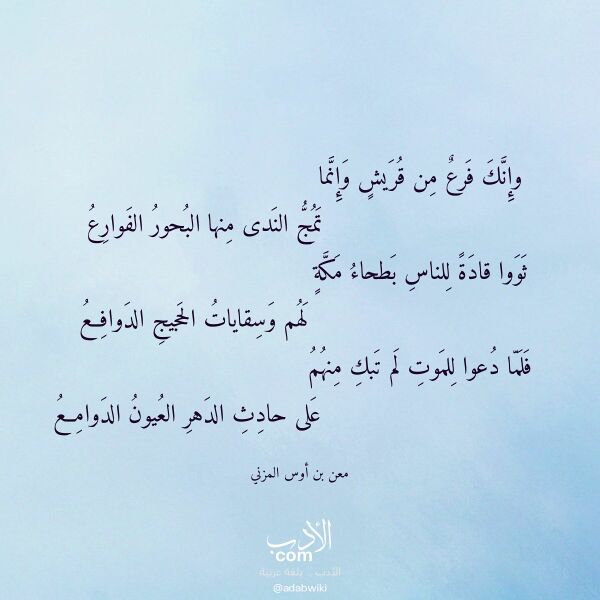 وإِنَّكَ فَرعٌ مِن قُرَيشٍ وَإِنَّما
تَمُجُّ النَدى مِنها البُحورُ الفَوارِعُ
ثَوَوا قادَةً لِلناسِ بَطحاءُ مَكَّةٍ
لَهُم وَسِقاياتُ الحَجيجِ الدَوافِعُ
فَلَمّا دُعوا لِلمَوتِ لَم تَبكِ مِنهُمُ
عَلى حادِثِ الدَهرِ العُيونُ الدَوامِعُ
معن بن أوس المزني
الأدب
com
الأدب .. بلغة عربية
@adabwiki